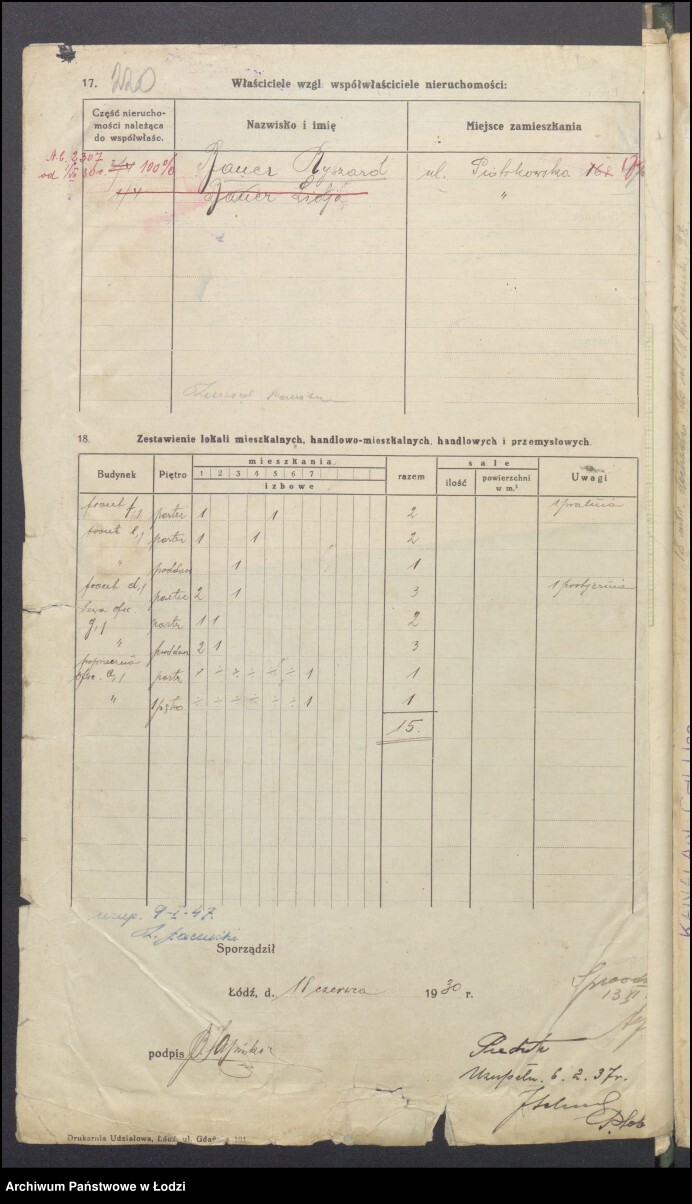 17. 220 Właściciele wzgl. współwłaściciele nieruchomości:
Część nierucho-
mości należąca
do współwłaśc.
Nazwisko i imię
Miejsce zamieszkania
A.C. 2307
3/4 100% Bauer Ryszard ul. Piotrkowska
1/4 Bauer Lidja "
18. Zestawienie lokali mieszkalnych, handlowo-mieszkalnych, handlowych i przemysłowych.
Budynek Piętro mieszkania razem sale Uwagi
1 2 3 4 5 6 7
izbowe
ilość powierzchni
w m.²
front parter 1 1 2 1 pralnia
front parter 1 1 2
" poddasz 1 1
front parter 2 1 3 1 portjernia
lewa ofic.
parter 1 1 2
" poddasz 2 1 3
poprzeczna
ofic. parter 1 1
" 1 piętro 1 1
15.
uzup. 9-I-47.
Sporządził
Łódź, d. 18 czerwca 1930 r.
podpis
13 XI.
Uzupełn. 6. 2. 37r.
Drukarnia Udziałowa, Łódź, ul. Gdańska 101
Archiwum Państwowe w Łodzi